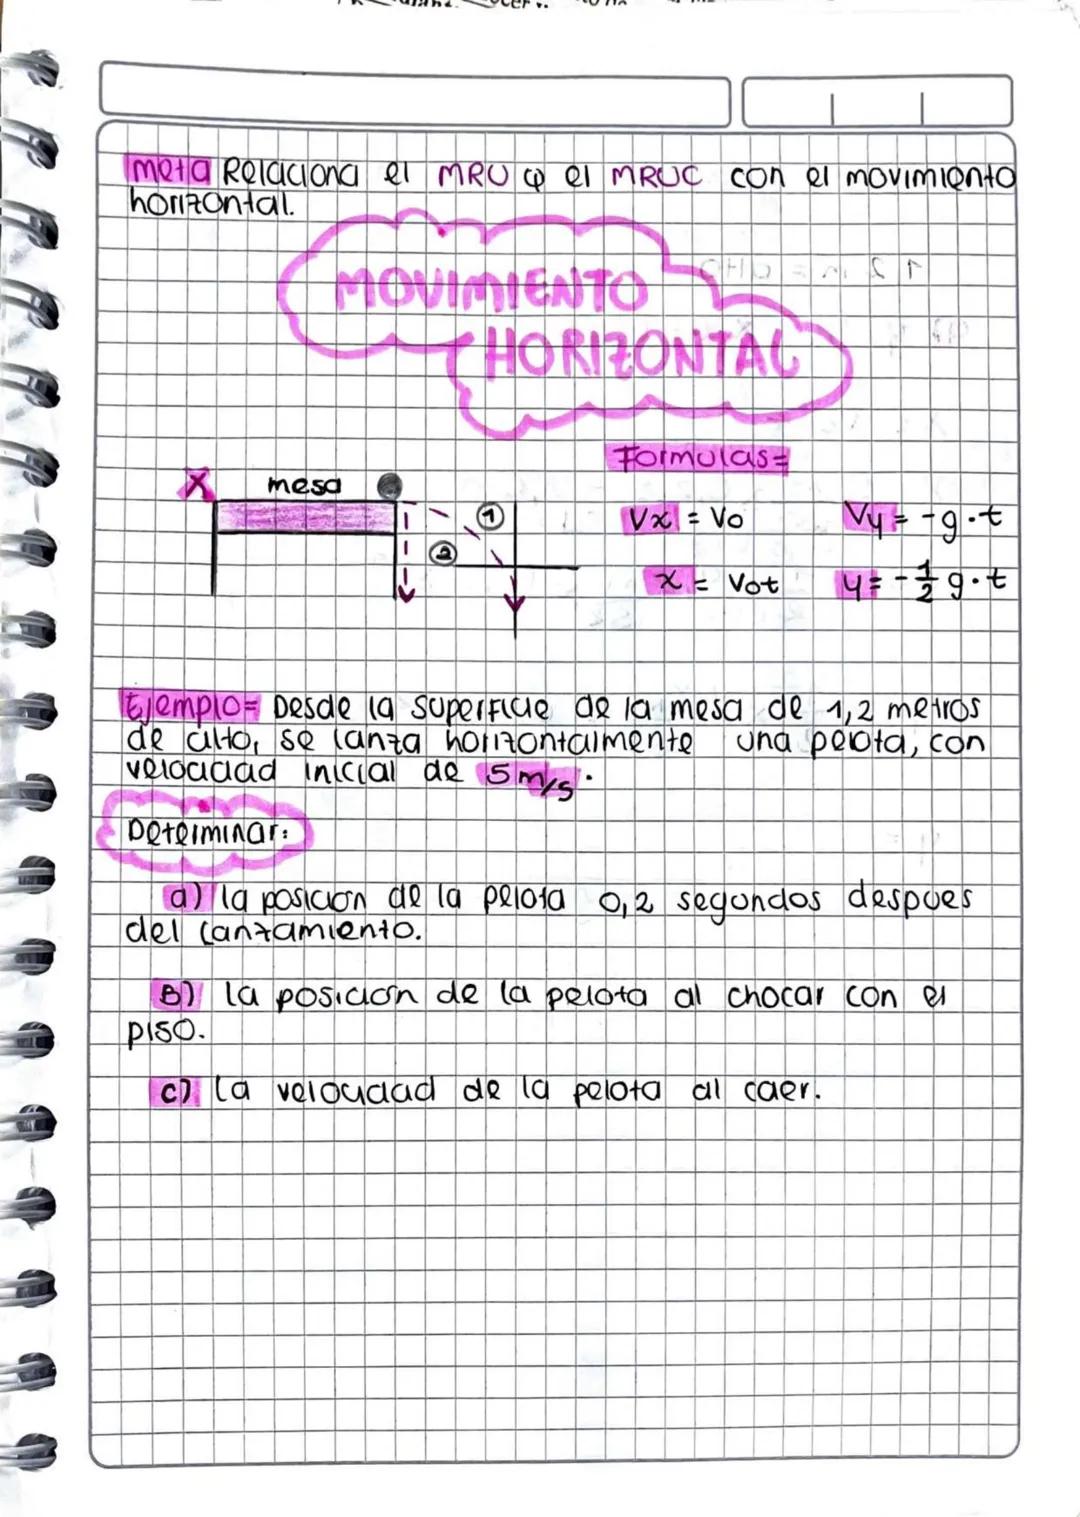 meta Relaciona el MRU y el MRUC con el movimiento
horizontal.
MOVIMIENTO
HORIZONTAL
Formulas=
X mesa
1
2
Vx = Vo
Vy = -g.t
x = Vot
y = - 1/2 g.t
Ejemplo= Desde la superficie de la mesa de 1,2 metros
de alto, se lanza horizontalmente una pelota, con
velocidad inicial de 5 m/s.
Determinar:
a) la posicion de la pelota 0,2 segundos despues
del lanzamiento.
B) la posicion de la pelota al chocar con el
piso.
c) La velocidad de la pelota al caer.